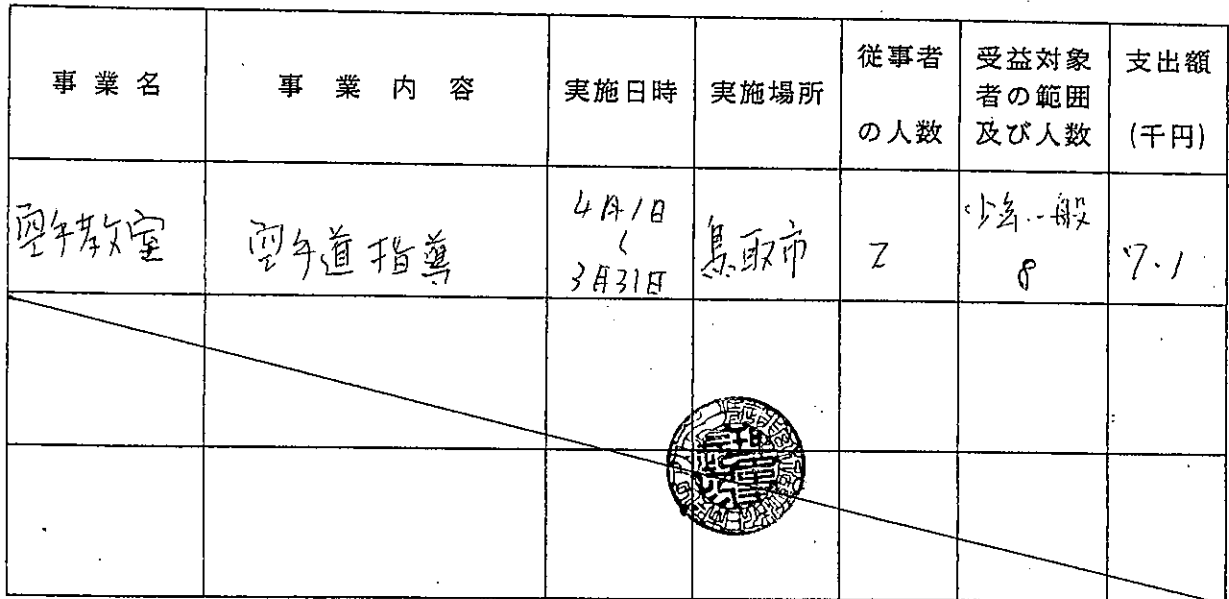 事業名
事業内容
実施日時
実施場所
従事者
の人数
受益対象
者の範囲
及び人数
支出額
(千円)
空手教室
空手道指導
4月1日
〜
3月31日
鳥取市
2
一般
8
7.1